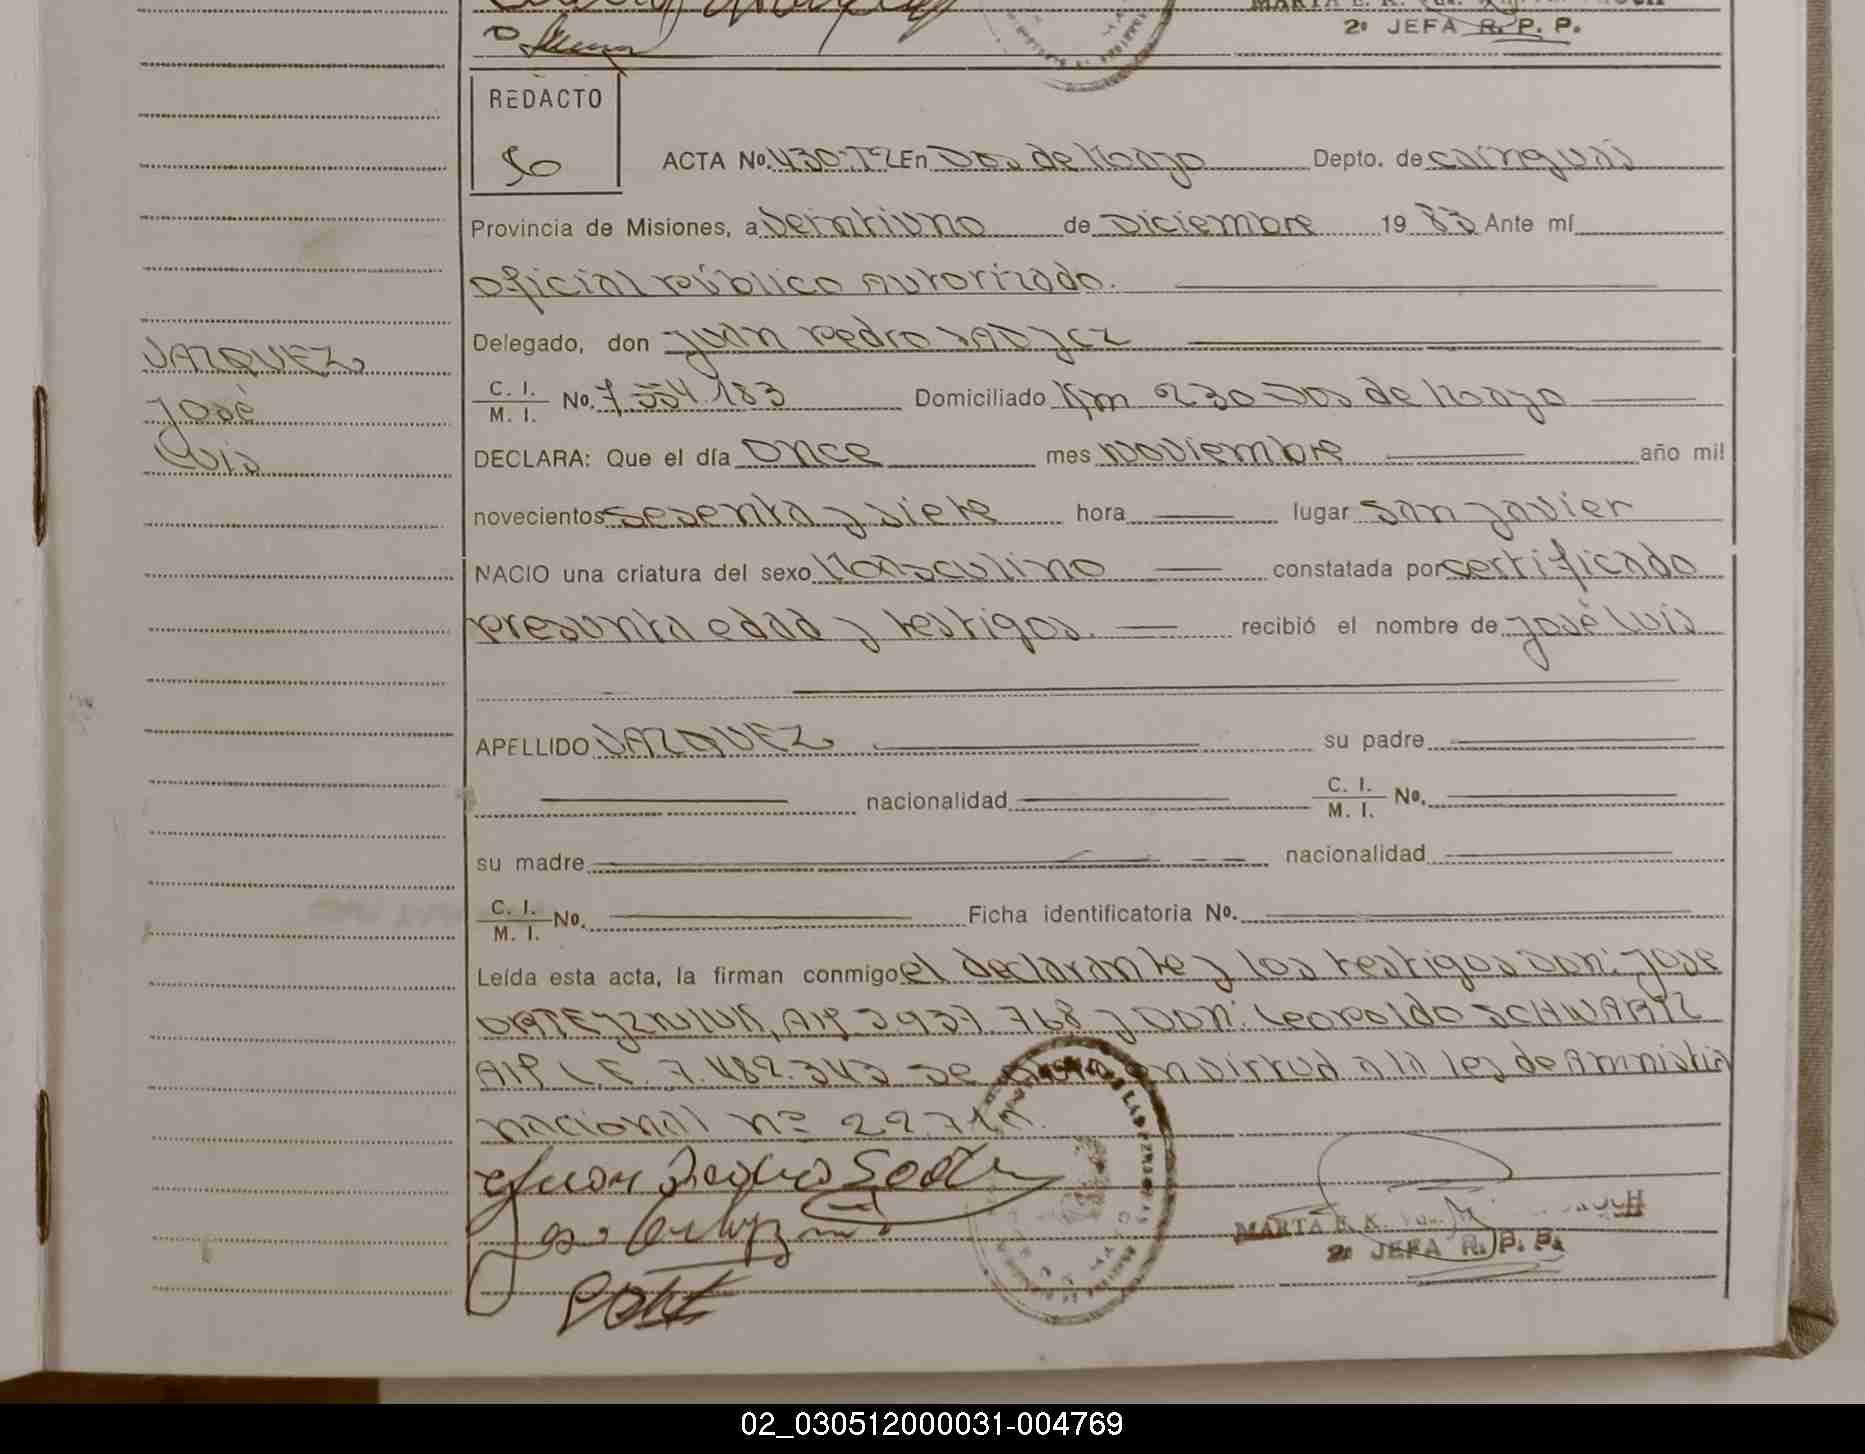 MARTA E. K.
2º JEFA R. P. P.
REDACTO
ACTA No. 430-Tº2 En Dos de Mayo Depto. de cainguas
Provincia de Misiones, a Veintiuno de Diciembre 19 83 Ante mí
oficial público autorizado.
Delegado, don Juan Pedro
C. I. / M. I. No. 7.554.183 Domiciliado Km 230 Dos de Mayo
VAZQUEZ
José
Luis
DECLARA: Que el día once mes noviembre año mil
novecientos sesenta y siete hora lugar San Javier
NACIO una criatura del sexo Masculino constatada por certificado
presunta edad y testigos. recibió el nombre de José Luis
APELLIDO VAZQUEZ su padre
nacionalidad C. I. / M. I. No.
su madre nacionalidad
C. I. / M. I. No. Ficha identificatoria No.
Leída esta acta, la firman conmigo el declarante y los testigos Don: Jose
AIP 3.937.768 y Don: Leopoldo SCHWARTZ
AIP L.E. 7.482.343 se en virtud a la ley de Amnistia
nacional nº
MARTA E. K.
2º JEFA R. P. P.
02_030512000031-004769